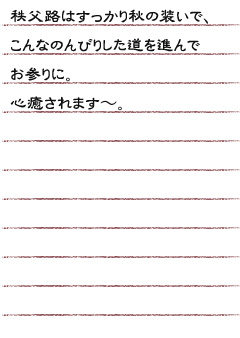 秩父路はすっかり秋の装いで、
こんなのんびりした道を進んで
お参りに。
心癒されます～。